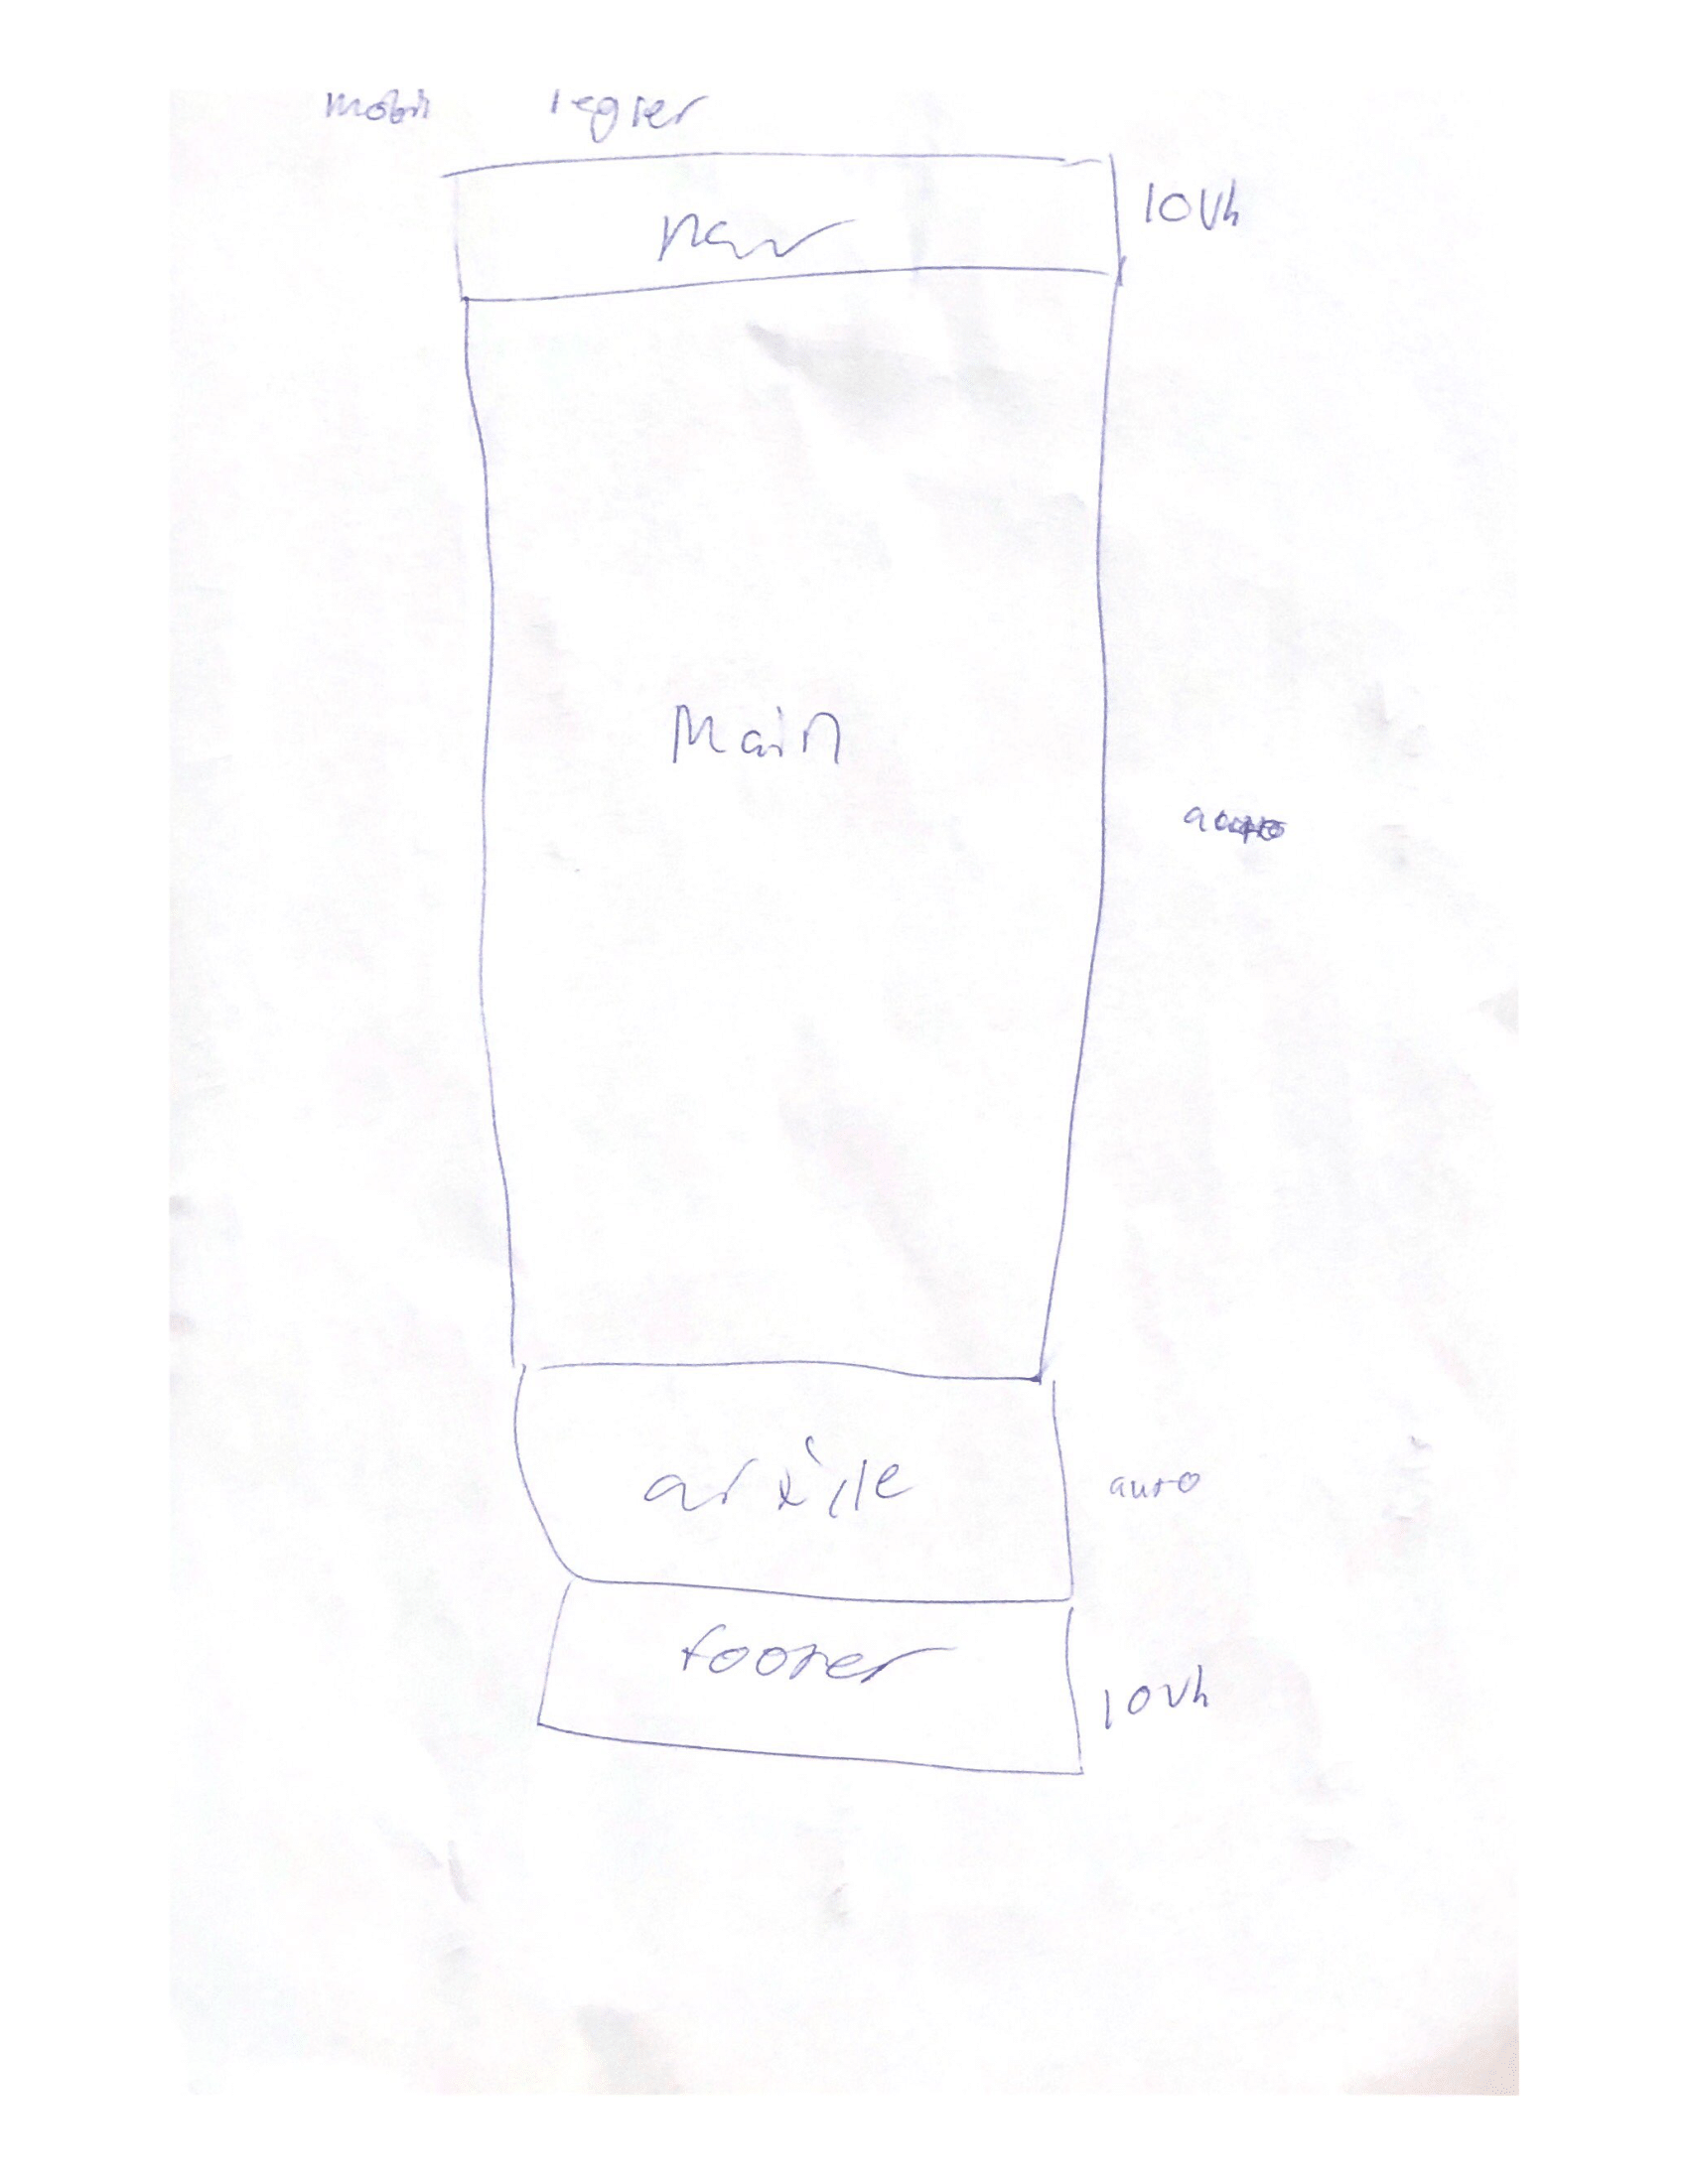 mobil
nav
10vh
Main
auto
article
auto
footer
10vh